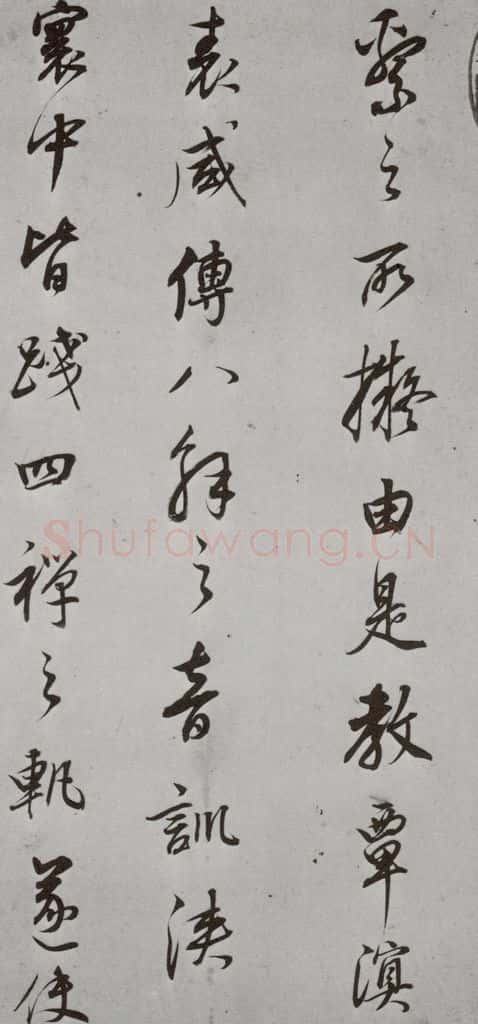 繫之所擬由是教覃溟
表咸傳八解之音訓浹
寰中皆踐四禪之軌遂使
Shufawang.CN